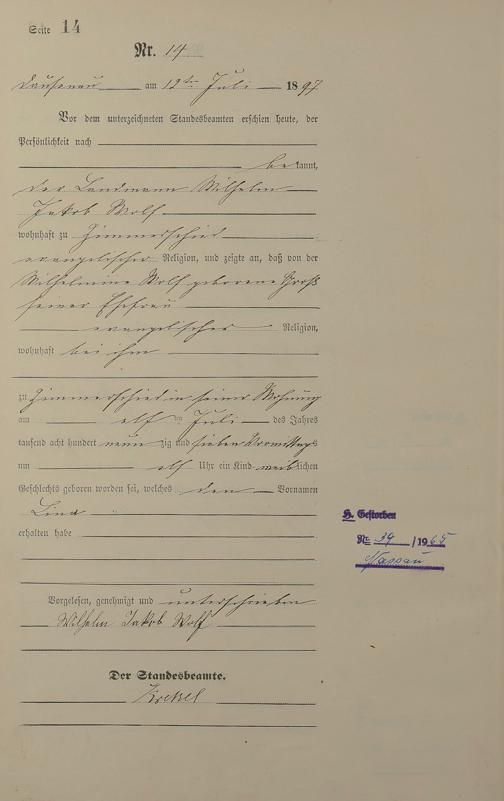 Seite 14
Nr. 14
Dausenau am 12ten Juli 1897
Vor dem unterzeichneten Standesbeamten erschien heute, der
Persönlichkeit nach
bekannt,
der Landmann Wilhelm
Jakob Wolf
wohnhaft zu Zimmerschied
evangelischer Religion, und zeigte an, daß von der
Wilhelmine Wolf geborene Groß
seiner Ehefrau
evangelischer Religion,
wohnhaft bei ihm
zu Zimmerschied in seiner Wohnung
am elf ten Juli des Jahres
tausend acht hundert neunzig und sieben Vormittags
um elf Uhr ein Kind weiblichen
Geschlechts geboren worden sei, welches den Vornamen
Lina
erhalten habe
Vorgelesen, genehmigt und unterschrieben
Wilhelm Jakob Wolf
Der Standesbeamte.
H. Gestorben
Nr. 39 /1965
Nassau